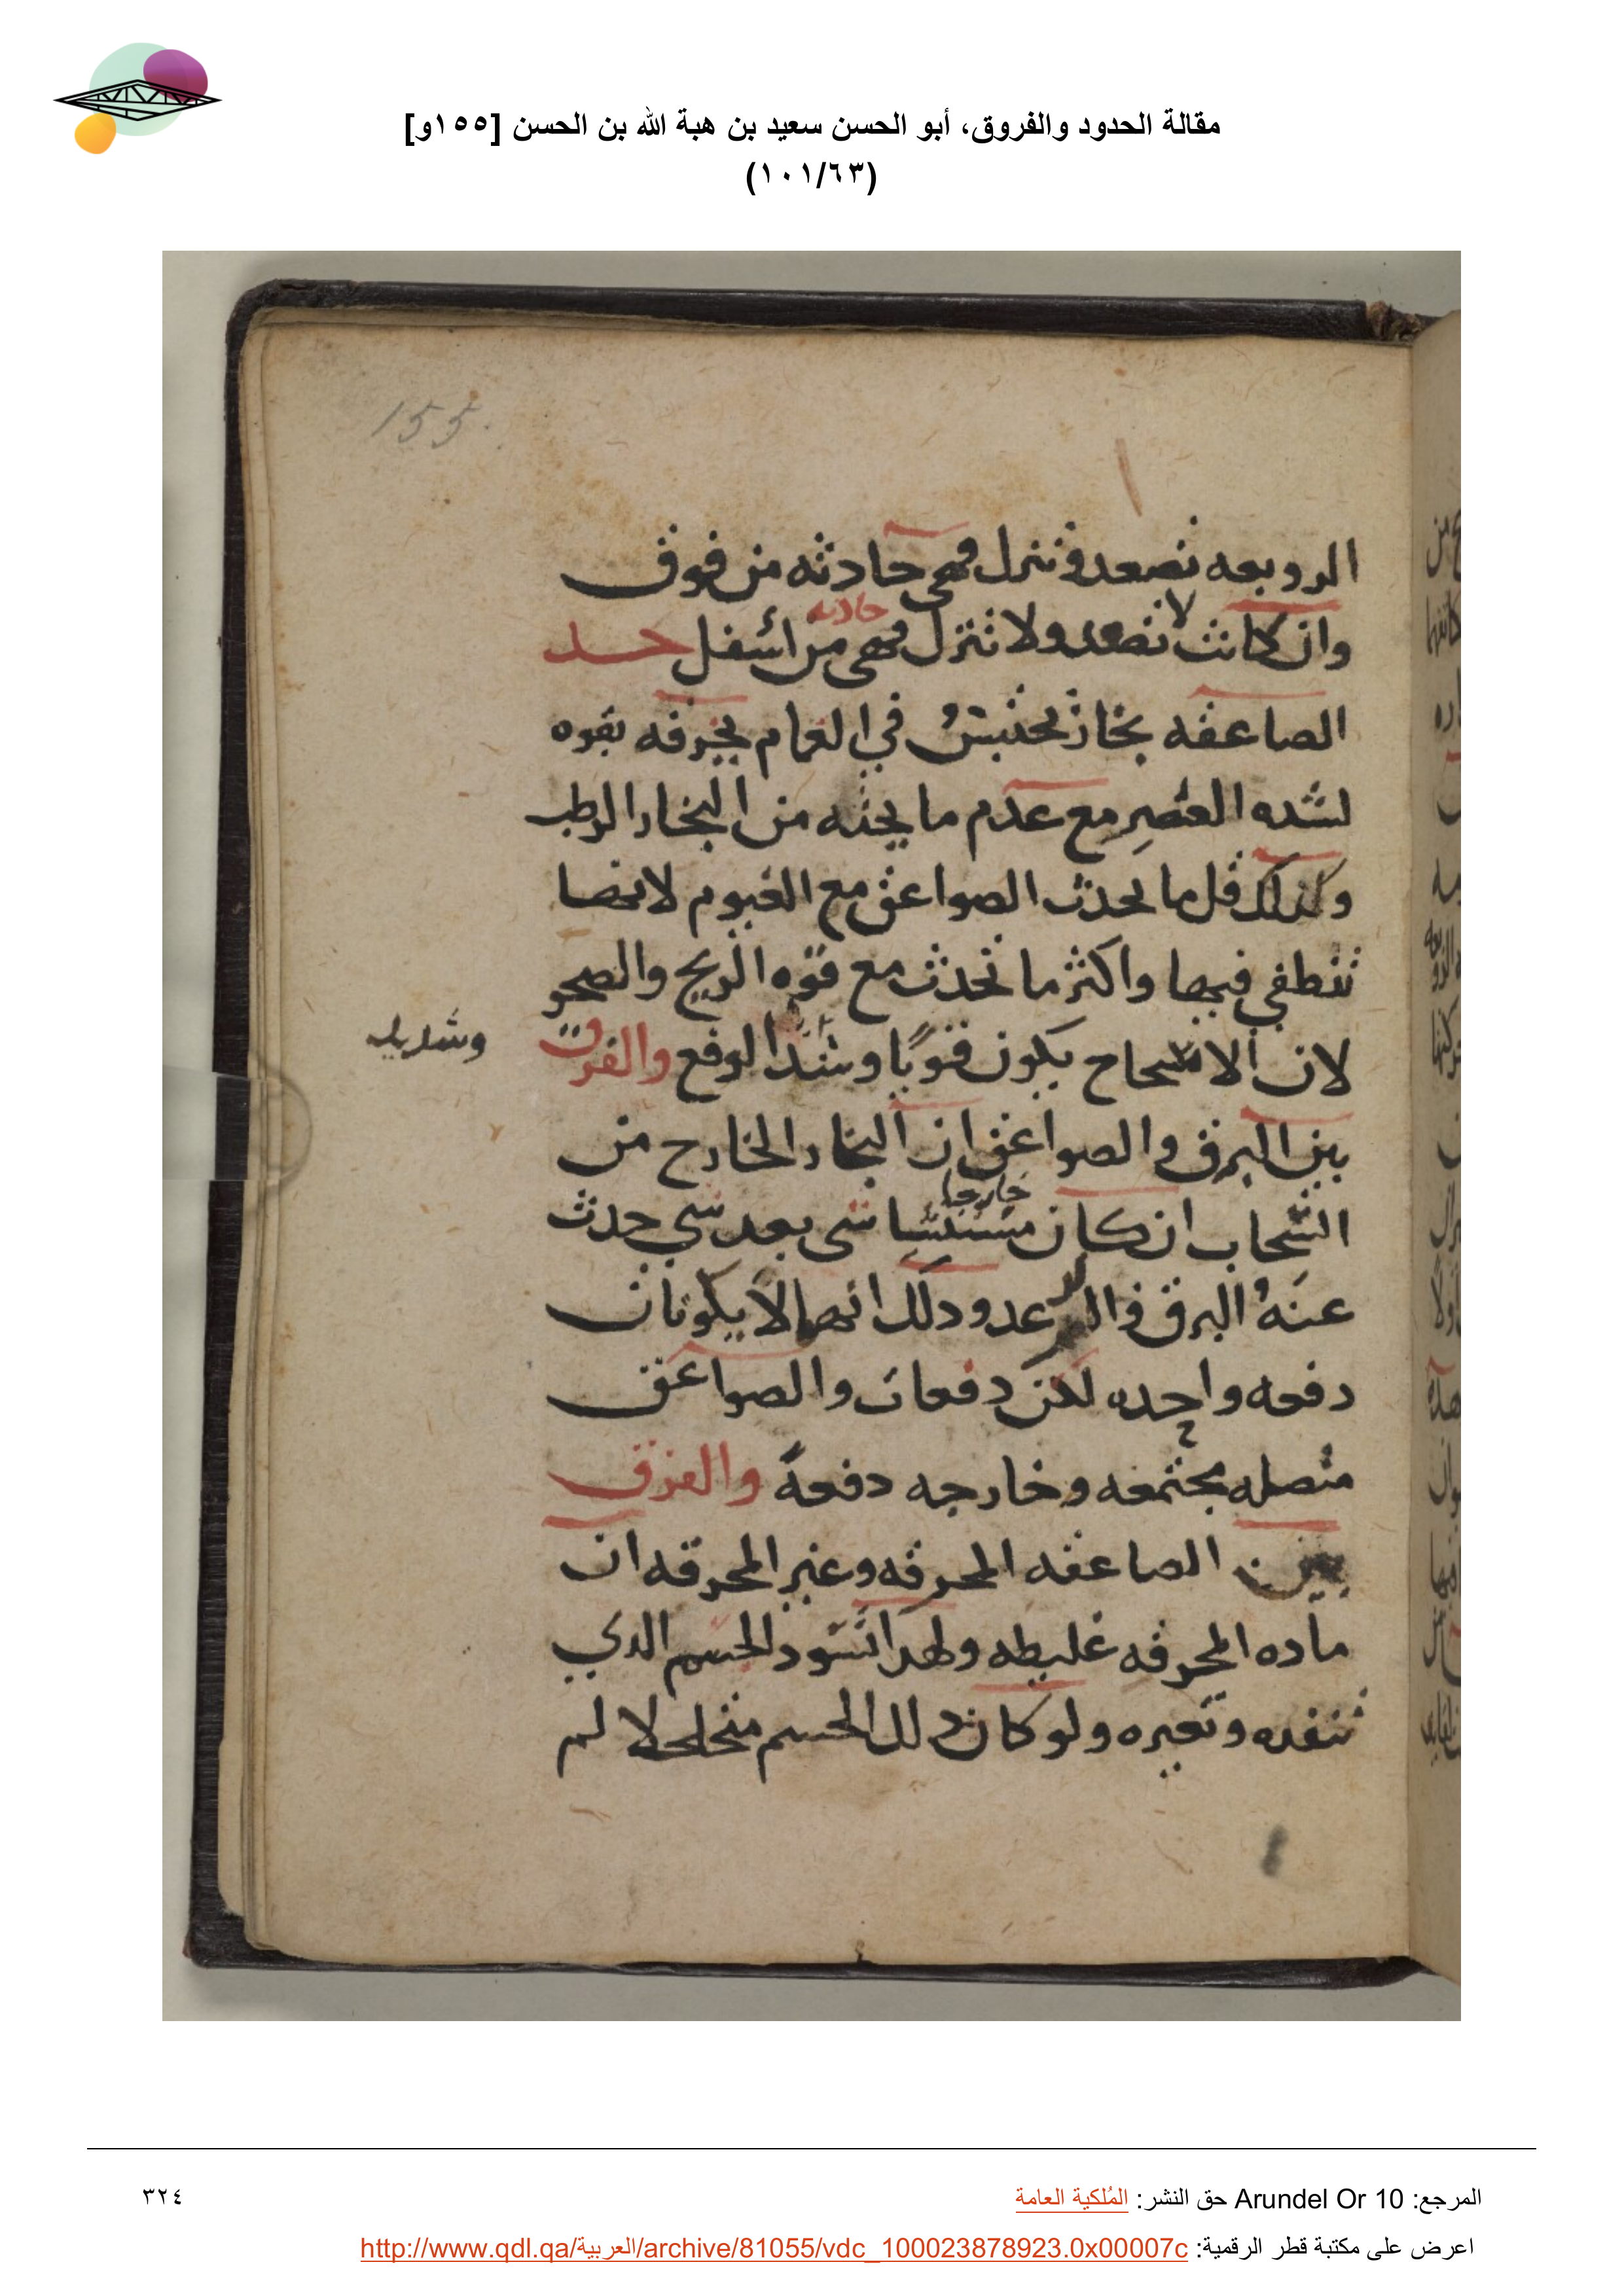 مقالة الحدود والفروق، أبو الحسن سعيد بن هبة الله بن الحسن [١٥٥و]
(١٠١/٦٣)
155.
الروبعه تصعد وتنزل فهي حادثه من فوق
وان كانت لا تصعد ولا تنزل فهي حادثه من اسفل حد
الصاعقه بخار يحتبس في الغمام يخرقه بقوه
لشده العصر مع عدم ما يحثه من البخار الرطب
وكذلك قل ما يحدث الصواعق مع الغيوم لانها
تنطفي فيها واكثر ما تحدث مع قوه الريح والصحو
لان الانسحاح يكون قويا وشد الوقع والفرق
وشديد
بين البرق والصواعق ان البخار الخارج من
السحاب ان كان خارجا شي بعد شي حدث
عنه البرق والرعد ودلك انهما لا يكونان
دفعه واحده لكن دفعات والصواعق
متصله مجتمعه وخارجه دفعة والفرق
بين الصاعقه المحرقه وغير المحرقه ان
ماده المحرقه غليطه ولهدا تسود الجسم الدي
تنفده وتغيره ولو كان دلك الجسم متخلخلا لم
المرجع: Arundel Or 10 حق النشر: المُلكية العامة
٣٢٤
اعرض على مكتبة قطر الرقمية: http://www.qdl.qa/العربية/archive/81055/vdc_100023878923.0x00007c